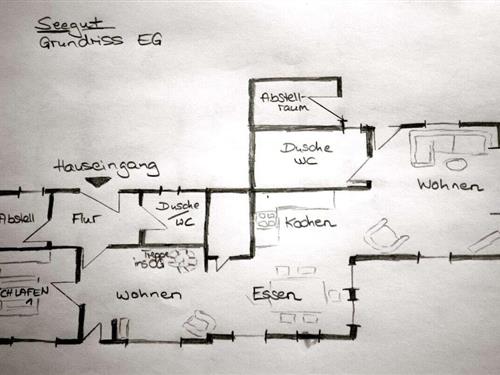 Seegut
Grundriss EG
Abstell-
raum
Dusche
WC
Hauseingang
Wohnen
Abstell
Flur
Dusche
WC
Kochen
Treppe
ins OG
CHLAFEN
1
Wohnen
Essen